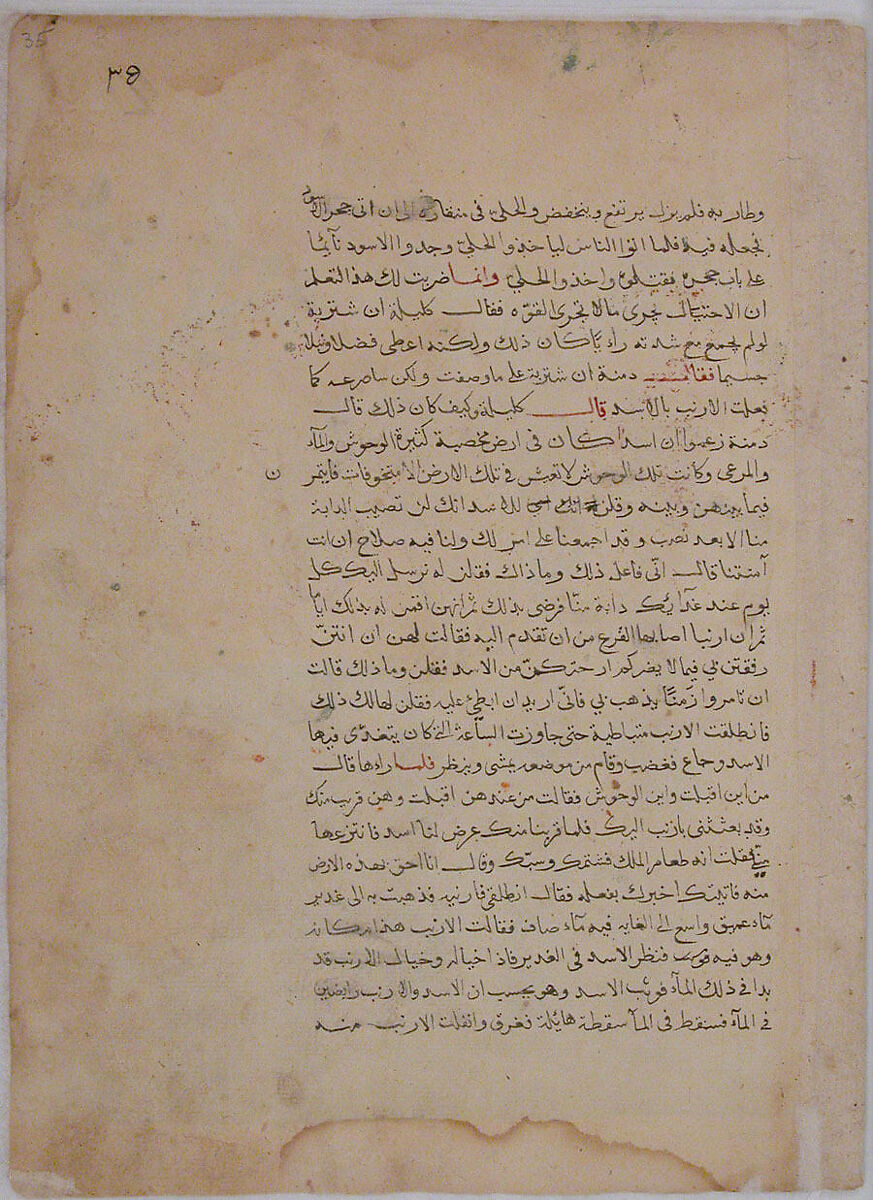 35
٣٥
وطار به فلم يزل يرتفع وينخفض والحلي في منقاره الى ان اتى جحر الاسود
فجعله فيه فلما اتوا الناس لياخذوا الحلي وجدوا الاسود نآيمًا
على باب جحره فقتلوه واخذوا الحلي وانما ضربت لك هذا لتعلم
ان الاحتيال يجرى ما لا تجرى القوه فقال كليلة ان شتربة
لو لم يجمع مع شدته رايًا كان ذلك ولكنه اعطى فضلا ونبلا
جسيما فقال دمنة ان شتربة على ما وصفت ولكن ساصرعه كما
فعلت الارنب بالاسد قال كليلة وكيف كان ذلك قال
دمنة زعموا ان اسدا كان في ارض مخصبة كثيرة الوحوش والمآء
والمرعى وكانت تلك الوحوش لا تعيش في تلك الارض الا متخوفات فايتمر
ن
فيما بينهن وبينه وقلن للاسد انك لن تصيب الدابة
منا الا بعد نصب وقد اجمعنا على امر لك ولنا فيه صلاح ان انت
آمنتنا قال انّي فاعل ذلك وما ذاك فقلن له نرسل اليك كل
يوم عند غدآيك دابة منّا فرضى بذلك ثم انهن اقمن له بذلك ايامًا
ثم ان ارنبا اصابها القرع من ان تقدم اليه فقالت لهن ان انتن
رفقتن بي فيما لا يضركم ارحتكن من الاسد فقلن وما ذلك قالت
ان تامروا زَمنًا يذهب بي فانّي اريد ان ابطئ عليه فقلن لها لك ذلك
فانطلقت الارنب متباطية حتى جاوزت السّاعة التي كان يتغدى فيها
الاسد وجاع فغضب وقام من موضعه يمشى وينظر فلما راءها قال
من اين اقبلت واين الوحوش فقالت من عندهن اقبلت وهن قريب منك
وقد بعثتنى بارنب اليك فلما قربنا منك عرض لنا اسد فانتزعها
منّي فقلت انه طعام الملك فشتمك وسبّك وقال انا احق بهذه الارض
منه فاتيتك اخبرك بفعله فقال انطلقي فارنيه فذهبت به الى غدير
مآء عميق واسع الى الغابه فيه مآء صاف فقالت الارنب هذا مكانه
وهو فيه فنظر الاسد في الغدير فاذا خياله وخيال الارنب قد
بدا في ذلك المآء فوثب الاسد وهو يحسب ان الاسد والارنب رابضين
في المآء فسقط في المآ سقطة هايلة فغرق وانفلت الارنب منه